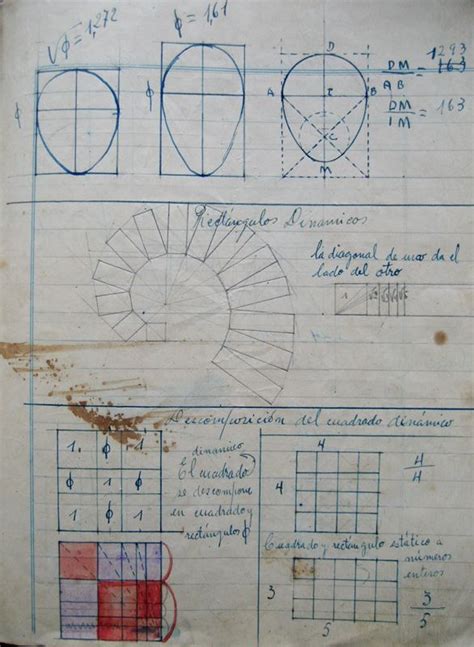 √φ = 1,272
φ = 1,61
φ
φ
D
A
C
B
M
DM
AB
=
1293
163
DM
IM
= 163
Rectángulos Dinámicos
la diagonal de uno da el
lado del otro
1 √2 √3 √4 √5
Descomposición del cuadrado dinámico
1. φ 1
1 φ 1
φ φ
1 φ 1
dinamico
El cuadrado
se descompone
en cuadrado y
rectángulos φ
4
4
4
4
Cuadrado y rectángulo estático a
números
enteros
3
5
3
5